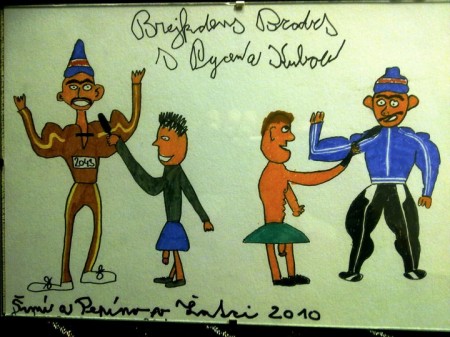 Brejkdens Brodrs
s Pycena Kubou
2043
Šimí a Pepíno v Žatci 2010